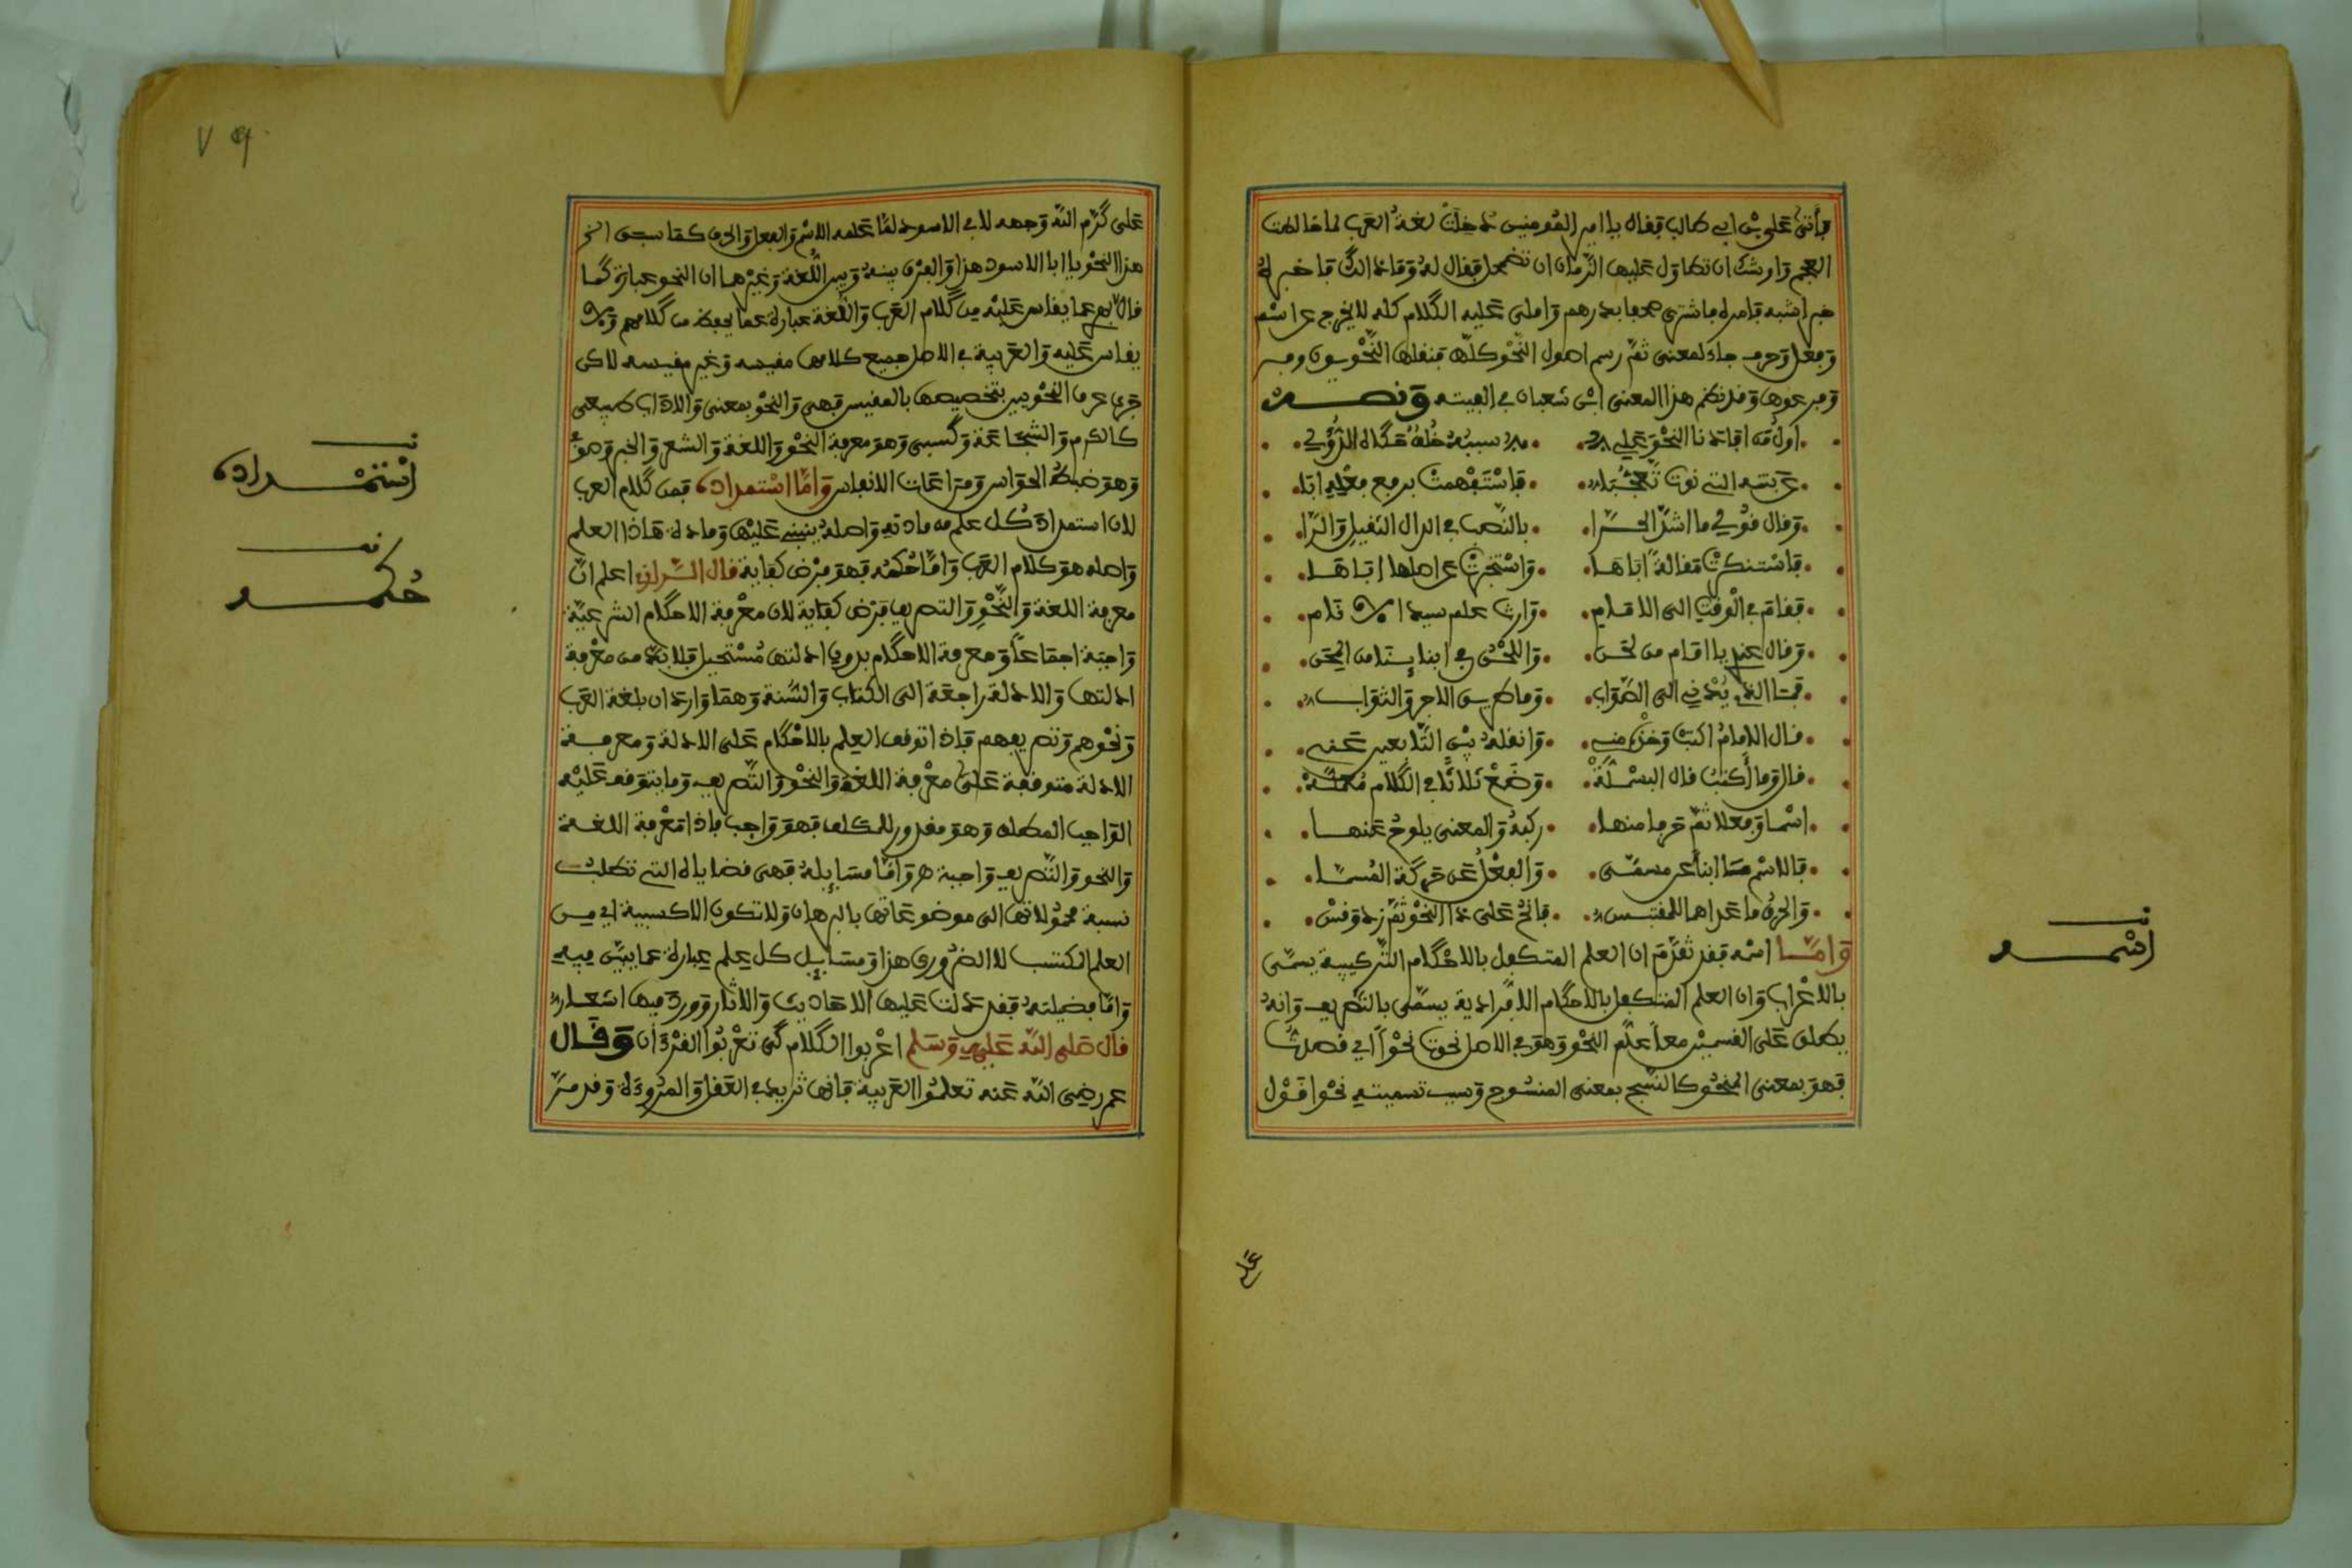 فأتى علي بن ابي طالب فقال يا امير المومنين دخلت لغة العرب لما خالطت
العجم واوشك ان تطاول عليها الزمان ان تضمحل فقال له وما ذالك فاخبره
خبر ابنته فامره فاشترى صحفا بدرهم واملى عليه الكلام كله لا يخرج عن اسم
وفعل وحرف جاء لمعنى ثم رسم اصول النحو كلها فنقلها النحويون
وفرعوها وقد نظم هذا المعنى ابن شعبان في الفيته ونصه
اول من افادنا النحو علي سببه خلف حكاه الدؤلي
عن بنته التي نوت تعجبا فاستفهمت برفع فعله ابا
وقال قولي ما اشد الحرا بالنصب في الدال الثقيل والرا
فاستنكرت مقالة اباها واستخبرت عن اصلها اباها
فقام في الوقت الى الامام وارث علم سيد الانام
وقال عند يا امام من لحن واللحن في ابنايـنا من المحن
فما الذي يهدي الى الصواب وما طريق الاجر والثواب
قال الامام اكتب وخذ عني وانقله بين التابعين عني
قال وما أكتب قال البسملة وضع ثلاثا في الكلام مكملة
اسما وفعلا ثم حرفا منها ركبه والمعنى يلوح عنها
فالاسم ما انبأ عن مسمى والفعل عن حركة المسما
والحرف ما عداهما للمقتبس فانح على هذا النحو ثم زد وقس
واما اسمه فقد تقدم ان العلم المتكفل بالاحكام التركيبية يسمى
بالاعراب وان العلم المتكفل بالاحكام الافرادية يسمى بالتصريف وانه
يطلق على القسمين معا علم النحو وهو في الاصل نحوت نحوا اي قصدت
فهو بمعنى المنحو كالنسج بمعنى المنسوج وسبب تسميته نحوا قول
علي
اسمه
٧٩
على كرم الله وجهه لابي الاسود لما علمه الاسم والفعل والحرف كما سبق انح
هذا النحو يا ابا الاسود هذا والفرق بينه وبين اللغة وغيرها ان النحو عبارة كما
قال عما يقاس عليه من كلام العرب واللغة عبارة عما يحفظ من كلامهم ولا
يقاس عليه والعربية في الاصل جميع كلامها مقيسه وغير مقيسه لاكن
جرى عرف النحويين بتخصيصها بالمقيس فهي والنحو بمعنى والاداب طبيعي
كالكرم والشجاعة وكسبي وهو معرفة النحو واللغة والشعر والخبر
وهو ضبط الحواس ومراعات الانفاس واما استمداده فمن كلام العرب
لان استمداد كل علم من مادته واصله ينبني عليها ومادة هاذا العلم
واصله هو كلام العرب واما حكمه فهو فرض كفاية قال الرازي اعلم ان
معرفة اللغة والنحو والتصريف فرض كفاية لان معرفة الاحكام الشرعية
واجبة اجماعا ومعرفة الاحكام بدون ادلتها مستحيل فلا بد من معرفة
ادلتها والادلة راجعة الى الكتاب والسنة وهما واردان بلغة العرب
ونحوهم وتصريفهم فاذا توقف العلم بالاحكام على الادلة ومعرفة
الادلة متوقفة على معرفة اللغة والنحو والتصريف وما يتوقف عليه
الواجب المطلق وهو مقدور للمكلف فهو واجب فاذا معرفة اللغة
والنحو والتصريف واجبة هـ واما مسايله فهي قضاياه التي تطلب
نسبة محمولاتها الى موضوعاتها بالبرهان ولا تكون الا كسبية اي من
العلم المكتسب لا الضروري هذا ومسايل كل علم عبارة عما يبين فيه
واما فضيلته فقد دلت عليها الاحاديث والاثار وورد فيها اشعار
قال صلى الله عليه وسلم اعربوا الكلام كي تعربوا القرءان وقال
عمر رضي الله عنه تعلموا العربية فانها تزيد في العقل والمروءة وقد مر
استمداده
حكمه